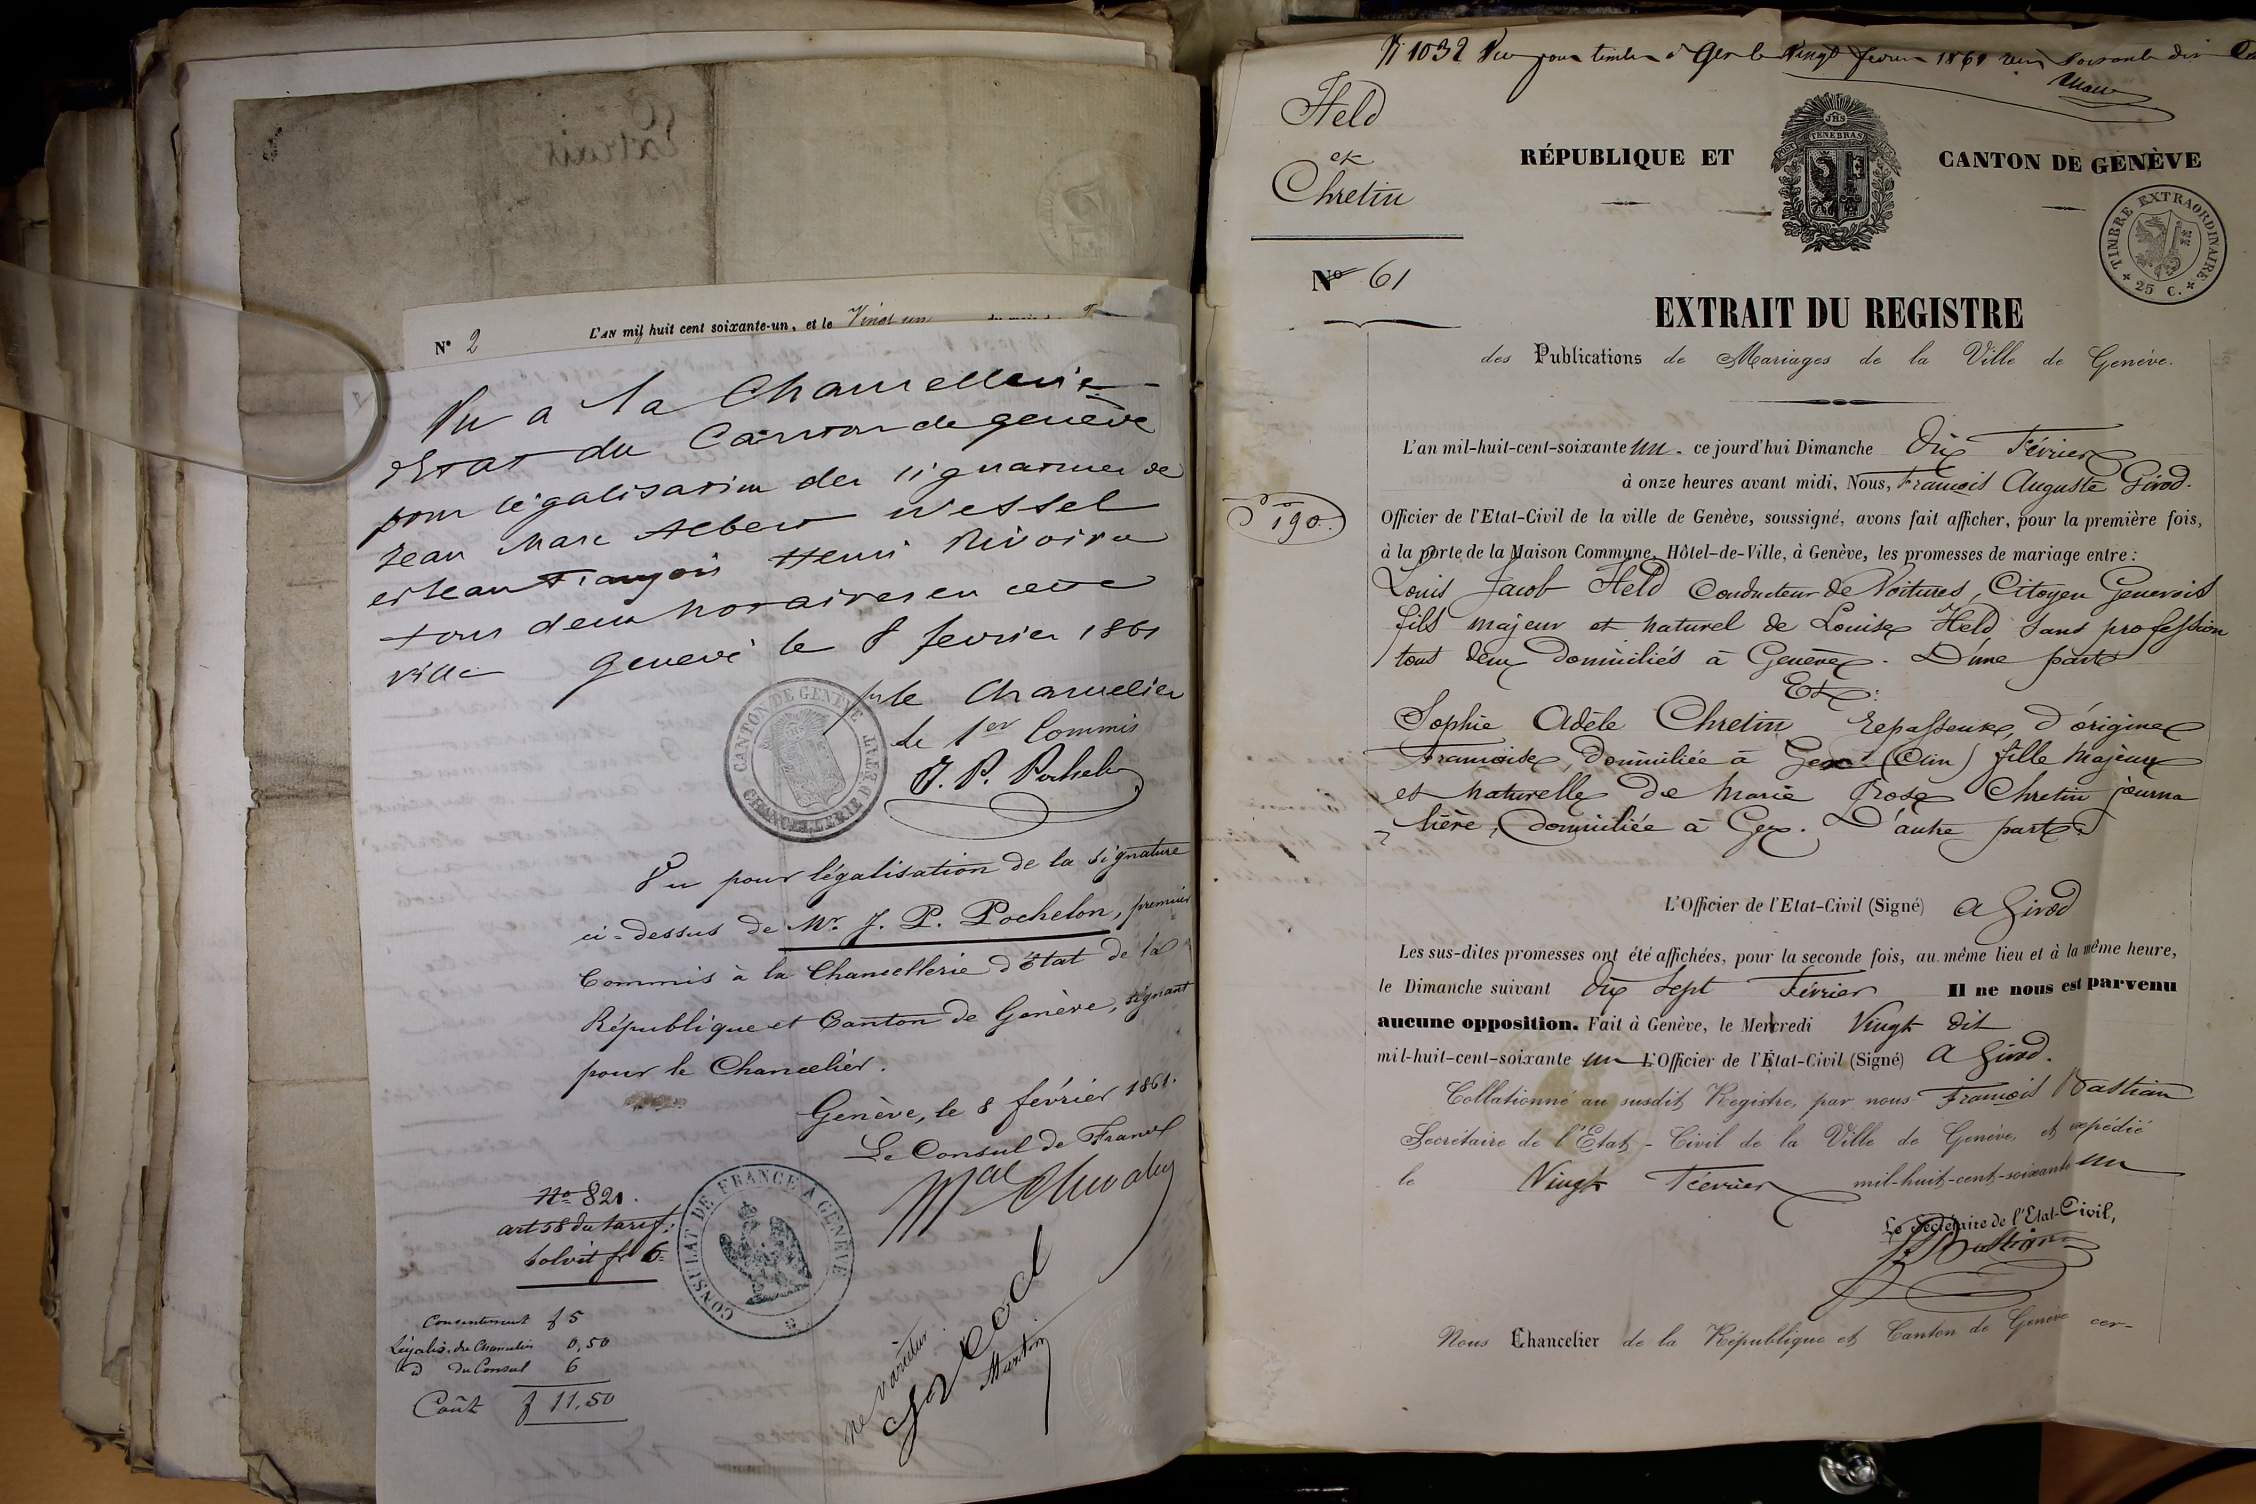 Extrait
N° 2 L'AN mil huit cent soixante-un, et le Vingt un
Vu a la Chancellerie
d'Etat du Canton de genève
pour légalisation des signatures de
Jean Marc Albert Wessel
et Jean François Henri Rivoire
tous deux notaires en cette
ville genève le 8 fevrier 1861
pr le Chancelier
le 1er Commis
J. P. Pochelon
CANTON DE GENÈVE
CHANCELLERIE D'ETAT
Vu pour légalisation de la signature
ci-dessus de Mr. J. P. Pochelon, premier
Commis à la Chancellerie d'état de la
République et Canton de Genève, signant
pour le Chancelier.
Genève, le 8 février 1861.
Le Consul de France
CONSULAT DE FRANCE A GENÈVE
No 821.
art 58 du tarif:
solvit fr 6.
Consentement f 5
Légalis. du Chancelier 0,50
d du Consul 6
Coût f 11,50
ne varietur
Martin
N 1032 Vu pour timbre à Gex le Vingt fevrier 1861 reçu soixante dix
Held
et
Chretin
RÉPUBLIQUE ET CANTON DE GENÈVE
JHS
POST TENEBRAS LUX
TIMBRE EXTRAORDINAIRE
25 C.
No 61
EXTRAIT DU REGISTRE
des Publications de Mariages de la Ville de Genève.
L'an mil-huit-cent-soixante un. ce jourd'hui Dimanche Dix Février
à onze heures avant midi, Nous, François Auguste Girod.
190.
Officier de l'Etat-Civil de la ville de Genève, soussigné, avons fait afficher, pour la première fois,
à la porte de la Maison Commune, Hôtel-de-Ville, à Genève, les promesses de mariage entre :
Louis Jacob Held Conducteur de Voitures, Citoyen Genevois
fils majeur et naturel de Louise Held, sans profession
tous deux domiciliés à Genève. D'une part
Et:
Sophie Adèle Chretin Repasseuse, d'origine
Française, domiciliée à Gex (Ain) fille majeure
et naturelle de Marie Rose Chretin journa
lière, domiciliée à Gex. D'autre part.
L'Officier de l'Etat-Civil (Signé) A Girod
Les sus-dites promesses ont été affichées, pour la seconde fois, au même lieu et à la même heure,
le Dimanche suivant Dix Sept Février Il ne nous est parvenu
aucune opposition. Fait à Genève, le Mercredi Vingt dit
mil-huit-cent-soixante un L'Officier de l'État-Civil (Signé) A Girod.
Collationné au susdit Registre, par nous François Bastian
Secrétaire de l'Etat-Civil de la Ville de Genève, et expédié
le Vingt Février mil-huit-cent-soixante un
Le Secrétaire de l'Etat-Civil,
F Bastian
Nous Chancelier de la République et Canton de Genève cer-